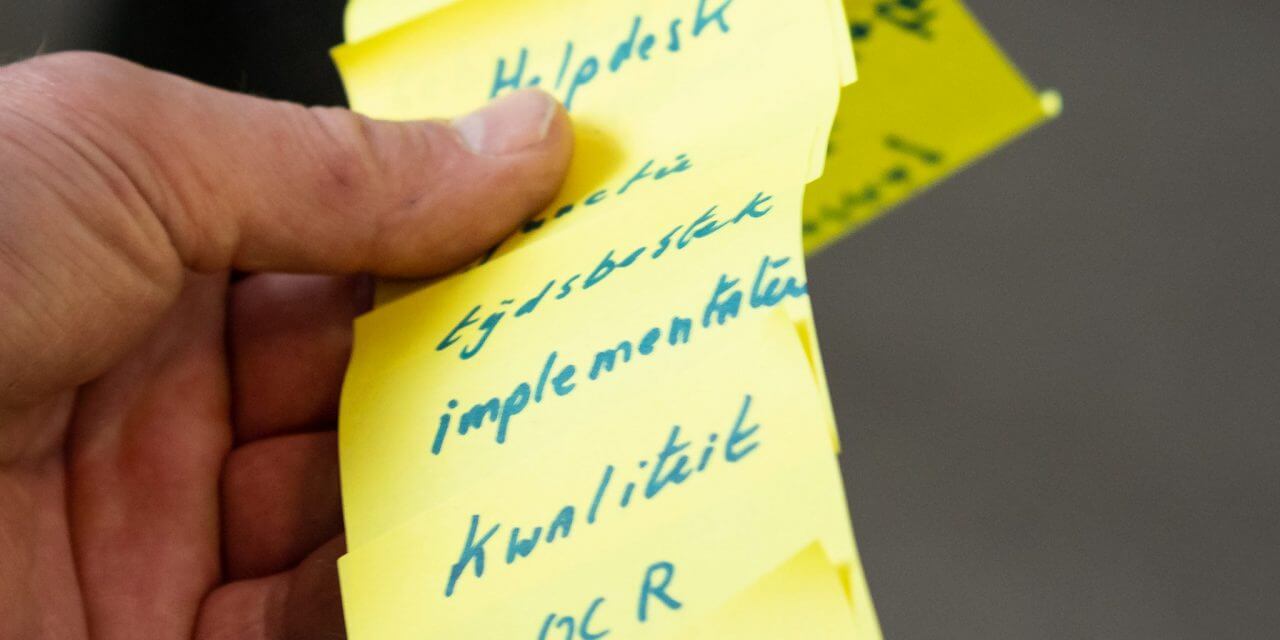 Helpdesk
tijdsbestek
implementatie
Kwaliteit
OCR